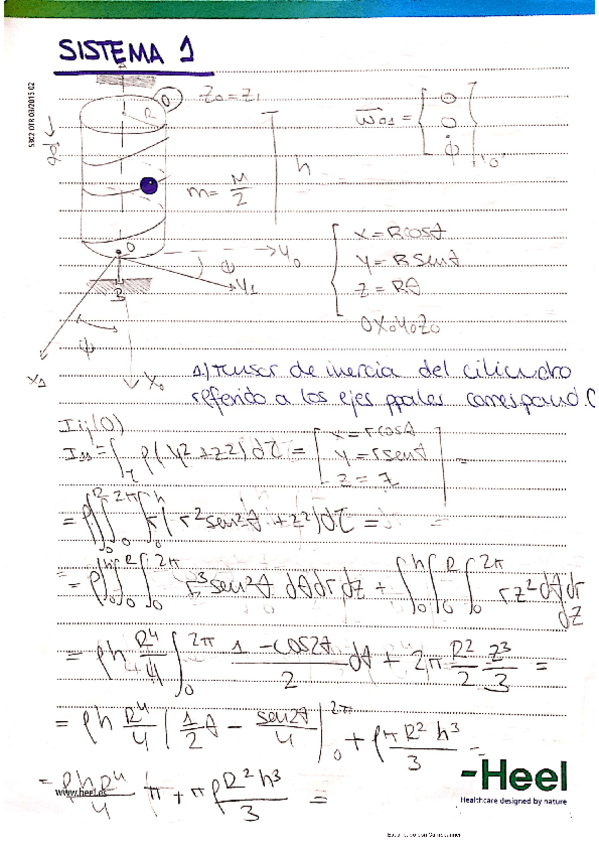 SISTEMA 1
53C2 OTR 03/2015 02
R
z₀ = z₁
h
m = M/2
ω₀₁ = { 0 0 φ̇ }'0'
0
y₀
φ
y₁
B
φ
x₁
x₀
{ x = R cosθ
y = R senθ
z = Rθ
0x₀y₀z₀
1) Tensor de inercia del cilindro
referido a los ejes ppales correspond. 0
Iij(0)
I₁₁ = ∫τ ρ(y² + z²)dτ = [ x = r cosθ
y = r senθ
z = z ] =
= ρ∫₀ᴿ∫₀²π∫₀ʰ r(r² sen²θ + z²)dτ =
= ρ∫₀ʰ∫₀ᴿ∫₀²π r³ sen²θ dθ dr dz + ∫₀ʰ∫₀ᴿ∫₀²π r z² dθ dr dz
= ρh R⁴/4 ∫₀²π (1 - cos2θ)/2 dθ + 2π R²/2 z³/3 =
= ρh R⁴/4 (1/2 θ - sen2θ/4)|₀²π + ρπR² h³/3 =
= ρhR⁴/4 π + πρ R² h³/3 =
www.heel.es
-Heel
Healthcare designed by nature